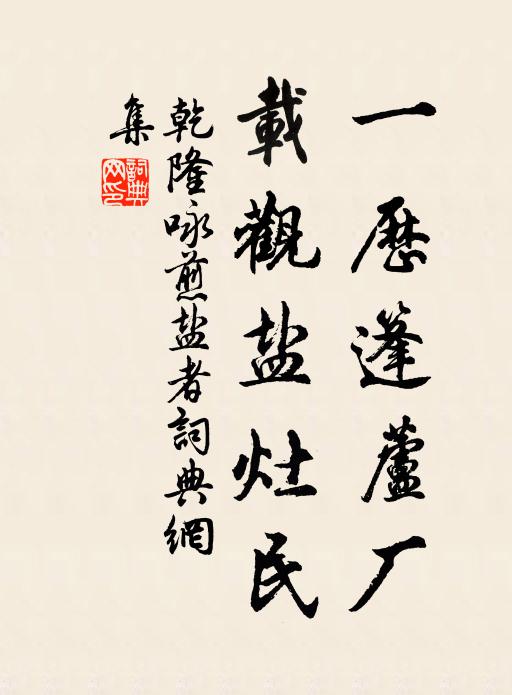 一歷蓬蘆厂
載觀盐灶民
乾隆咏煎盐者詞典網
集
詞典網印